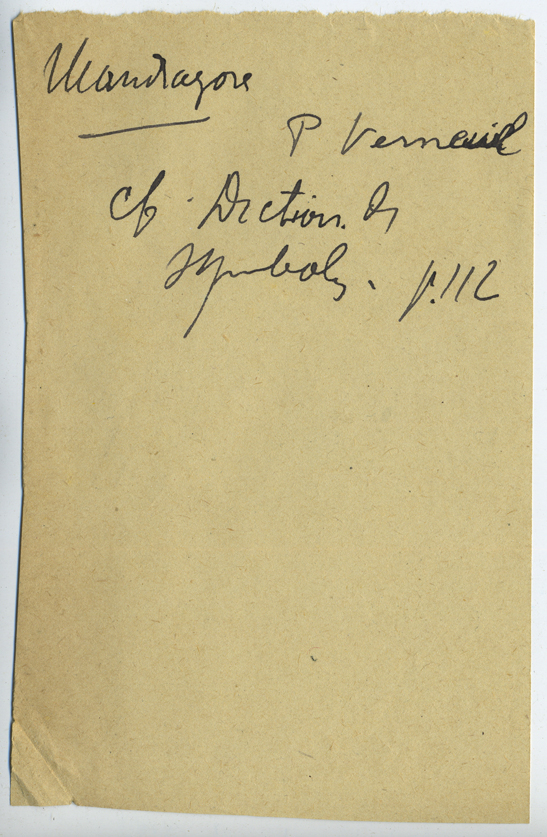 Mandragore
P Verneuil
cf. Diction. ds
Symboles. p.112